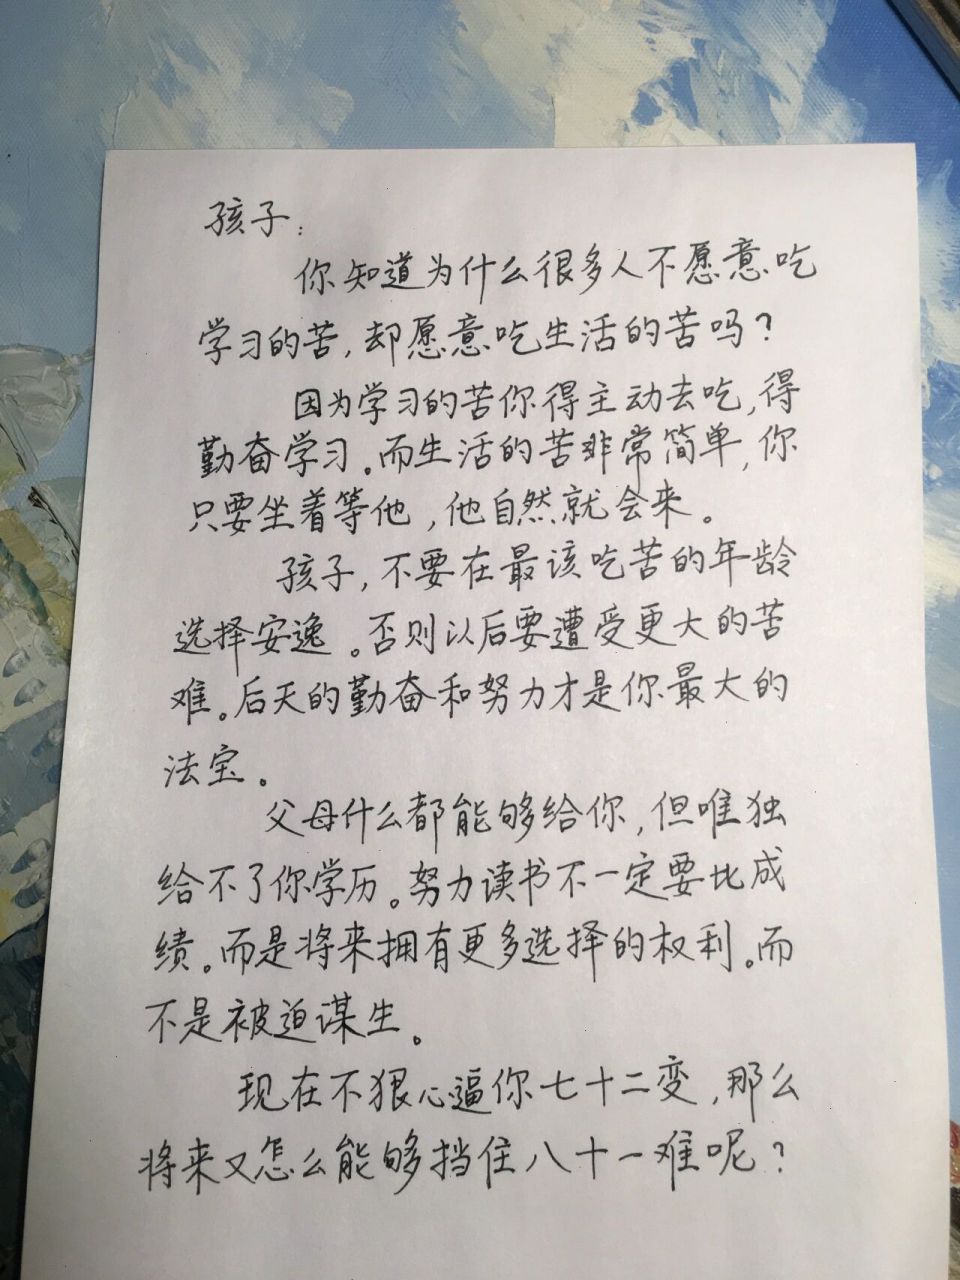 孩子:
你知道为什么很多人不愿意吃
学习的苦,却愿意吃生活的苦吗?
因为学习的苦你得主动去吃,得
勤奋学习。而生活的苦非常简单,你
只要坐着等他,他自然就会来。
孩子,不要在最该吃苦的年龄
选择安逸。否则以后要遭受更大的苦
难。后天的勤奋和努力才是你最大的
法宝。
父母什么都能够给你,但唯独
给不了你学历。努力读书不一定要比成
绩。而是将来拥有更多选择的权利。而
不是被迫谋生。
现在不狠心逼你七十二变,那么
将来又怎么能够挡住八十一难呢?